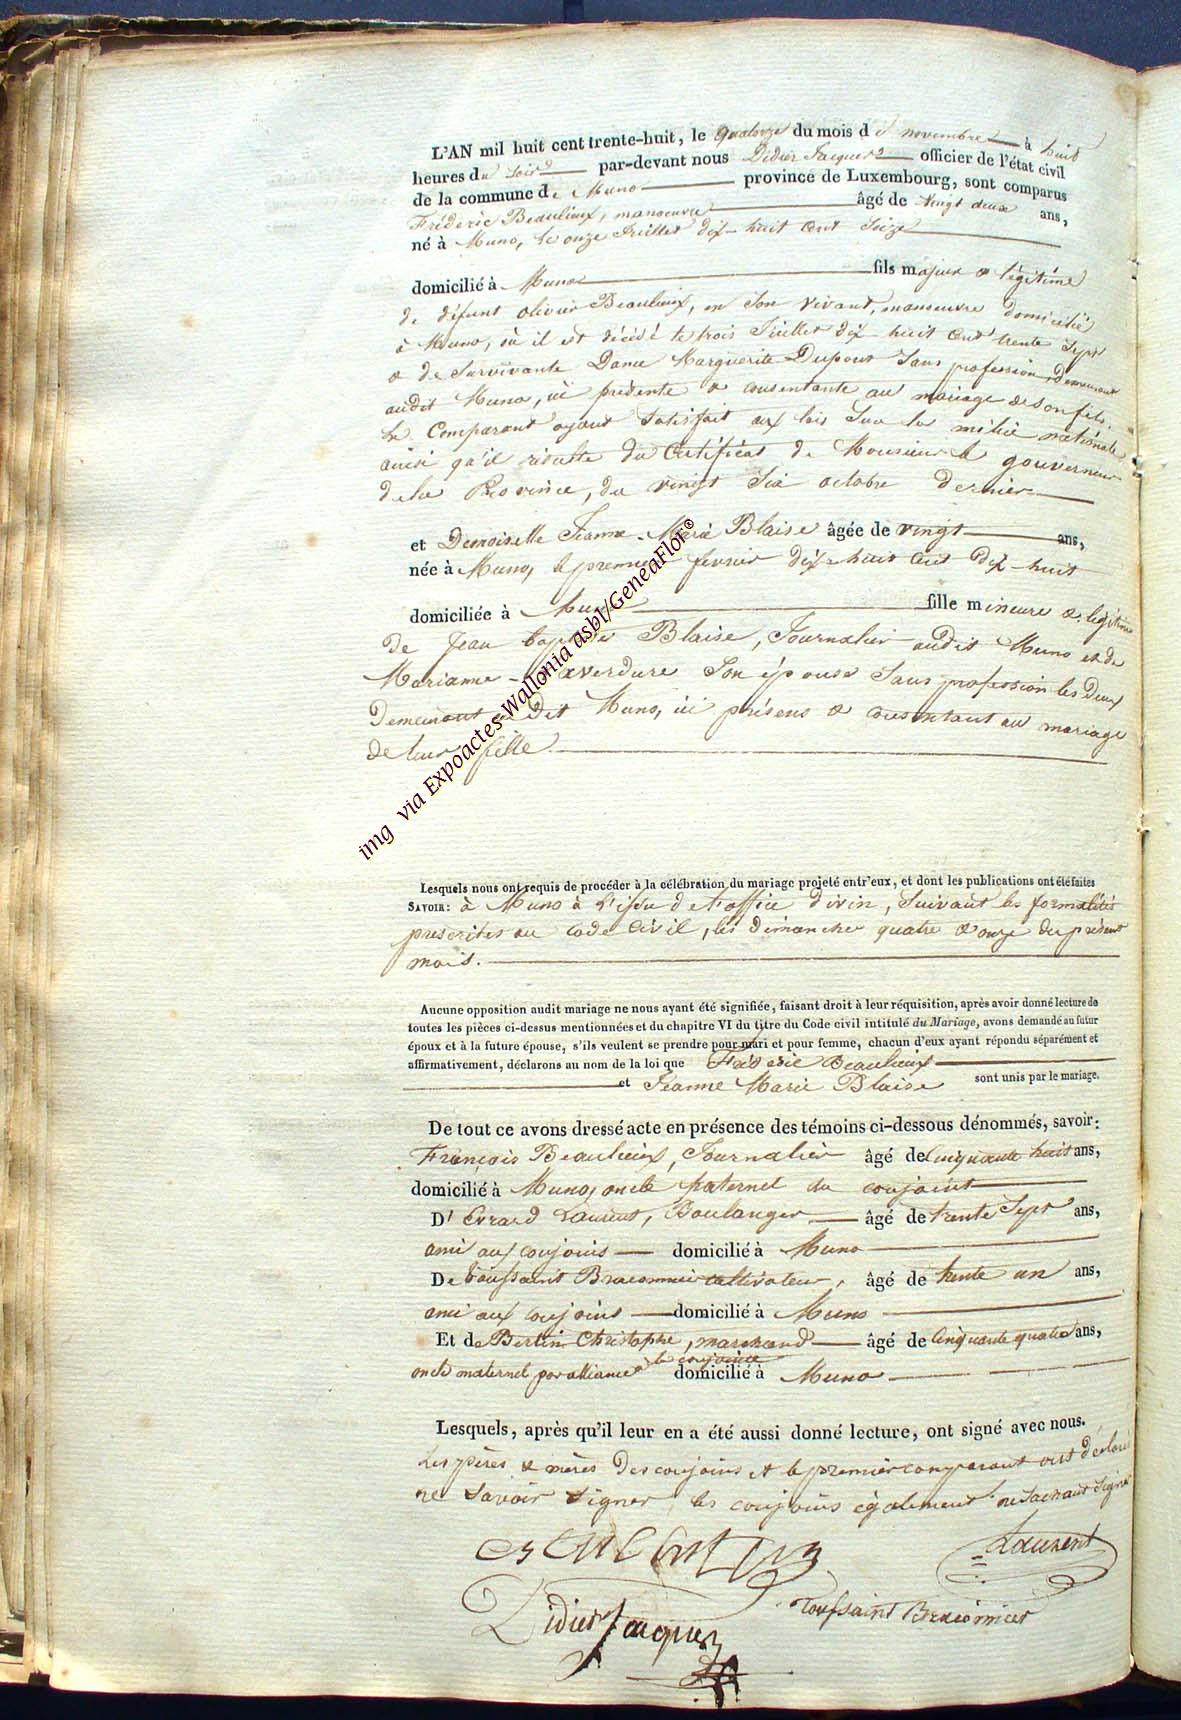 L'AN mil huit cent trente-huit, le quatorze du mois de novembre à huit
heures du soir par-devant nous Didier Jacques officier de l'état civil
de la commune de Muno province de Luxembourg, sont comparus
Fréderic Beaulieux, manoeuvre âgé de vingt deux ans,
né à Muno, le onze Juillet dix-huit cent Seize
domicilié à Muno fils majeur & légitime
de défunt olivier Beaulieux, en son vivant, manoeuvre domicilié
à Muno, où il est décédé le trois Juillet dix-huit cent trente Sept
& de Survivante Dame Marguerite Dupont Sans profession, demeurant
audit Muno, ici présente & consentante au mariage de son fils.
le Comparant ayant Satisfait aux lois Sur la milice nationale
ainsi qu'il résulte du Certificat de Monsieur le gouverneur
de la Province, du vingt Six octobre dernier
et Demoiselle Jeanne-Marie Blaise âgée de vingt ans,
née à Muno, le premier février dix-huit cent dix-huit
domiciliée à Muno fille mineure & légitime
de Jean baptiste Blaise, Journalier audit Muno et de
Marianne averdure Son épouse Sans profession les deux
demeurant au dit Muno, ici présens & consentant au mariage
de leur fille.
Lesquels nous ont requis de procéder à la célébration du mariage projeté entr'eux, et dont les publications ont été faites
SAVOIR: à Muno à l'issu de l'office divin, Suivant les formalités
prescrites au Code Civil, les dimanches quatre & onze du présent
mois.
Aucune opposition audit mariage ne nous ayant été signifiée, faisant droit à leur réquisition, après avoir donné lecture de
toutes les pièces ci-dessus mentionnées et du chapitre VI du titre du Code civil intitulé du Mariage, avons demandé au futur
époux et à la future épouse, s'ils veulent se prendre pour mari et pour femme, chacun d'eux ayant répondu séparément et
affirmativement, déclarons au nom de la loi que Fréderic Beaulieux
et Jeanne Marie Blaise sont unis par le mariage.
De tout ce avons dressé acte en présence des témoins ci-dessous dénommés, savoir:
François Beaulieux, Journalier âgé de Cinquante huit ans,
domicilié à Muno, oncle paternel du conjoint
D' Evrard Laurent, Boulanger âgé de trente Sept ans,
ami aux conjoins domicilié à Muno
De toussaint Braconnier cultivateur, âgé de trente un ans,
ami aux conjoins domicilié à Muno
Et de Bertin Christophe, marchand âgé de Cinquante quatre ans,
oncle maternel par alliance à la conjointe domicilié à Muno
Lesquels, après qu'il leur en a été aussi donné lecture, ont signé avec nous.
Les pères & mères des conjoins et le premier comparant ont déclaré
ne Savoir Signer, les conjoins également ne Sachant Signer
Laurent
Toussaint Braconnier
Didier Jacques
img via Expoactes-Wallonia asbl/GeneaFlor©